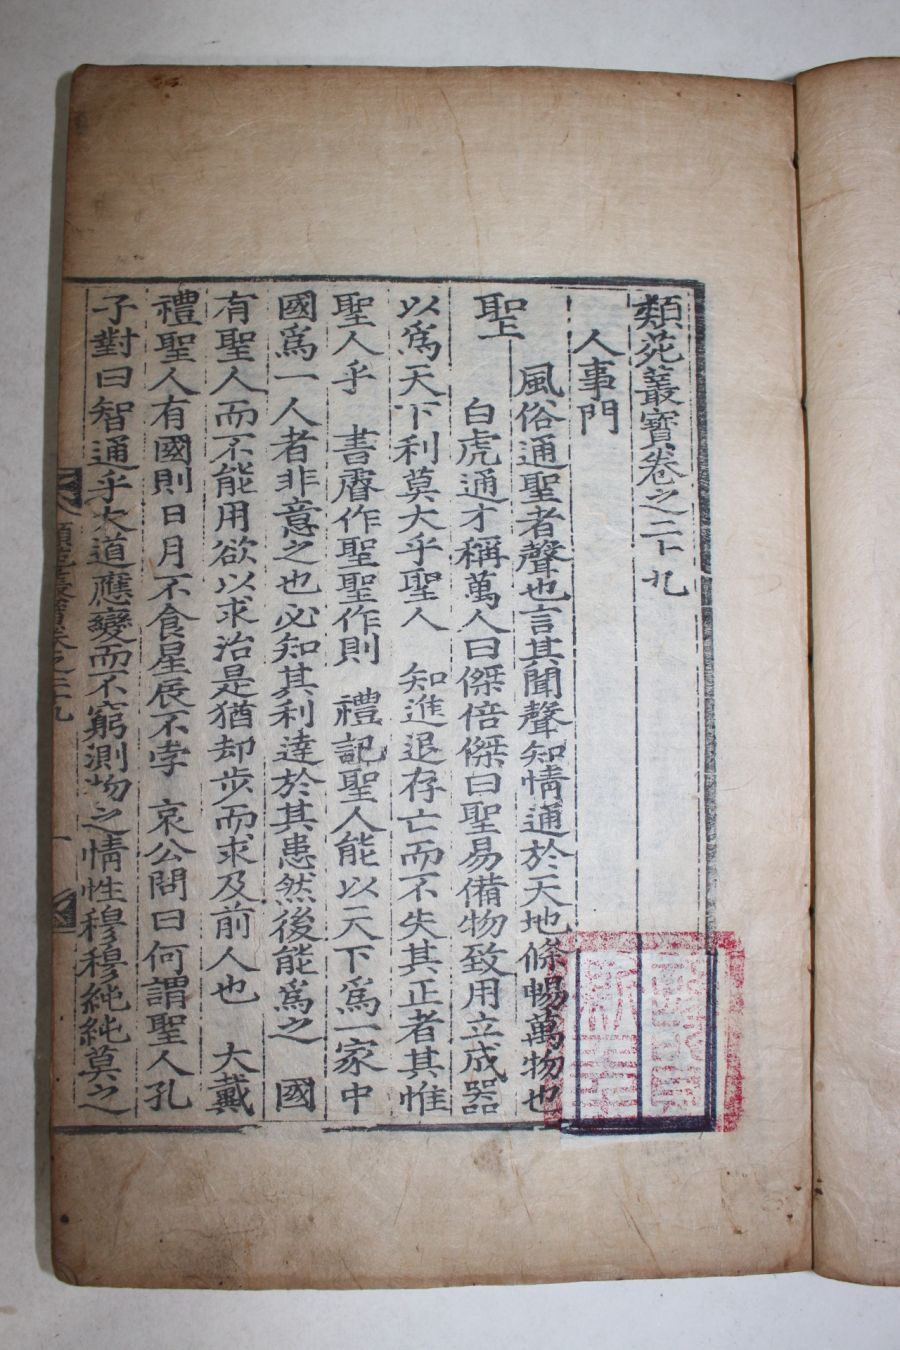 類苑叢寶卷之二十九
人事門
聖
風俗通聖者聲也言其聞聲知情通於天地條暢萬物也
白虎通才稱萬人曰傑倍傑曰聖易備物致用立成器
以爲天下利莫大乎聖人 知進退存亡而不失其正者其惟
聖人乎 書睿作聖聖作則 禮記聖人能以天下爲一家中
國爲一人者非意之也必知其利達於其患然後能爲之 國
有聖人而不能用欲以求治是猶却步而求及前人也 大戴
禮聖人有國則日月不食星辰不孛 哀公問曰何謂聖人孔
子對曰智通乎大道應變而不窮測物之情性穆穆純純莫之
類苑叢寶卷之二十九